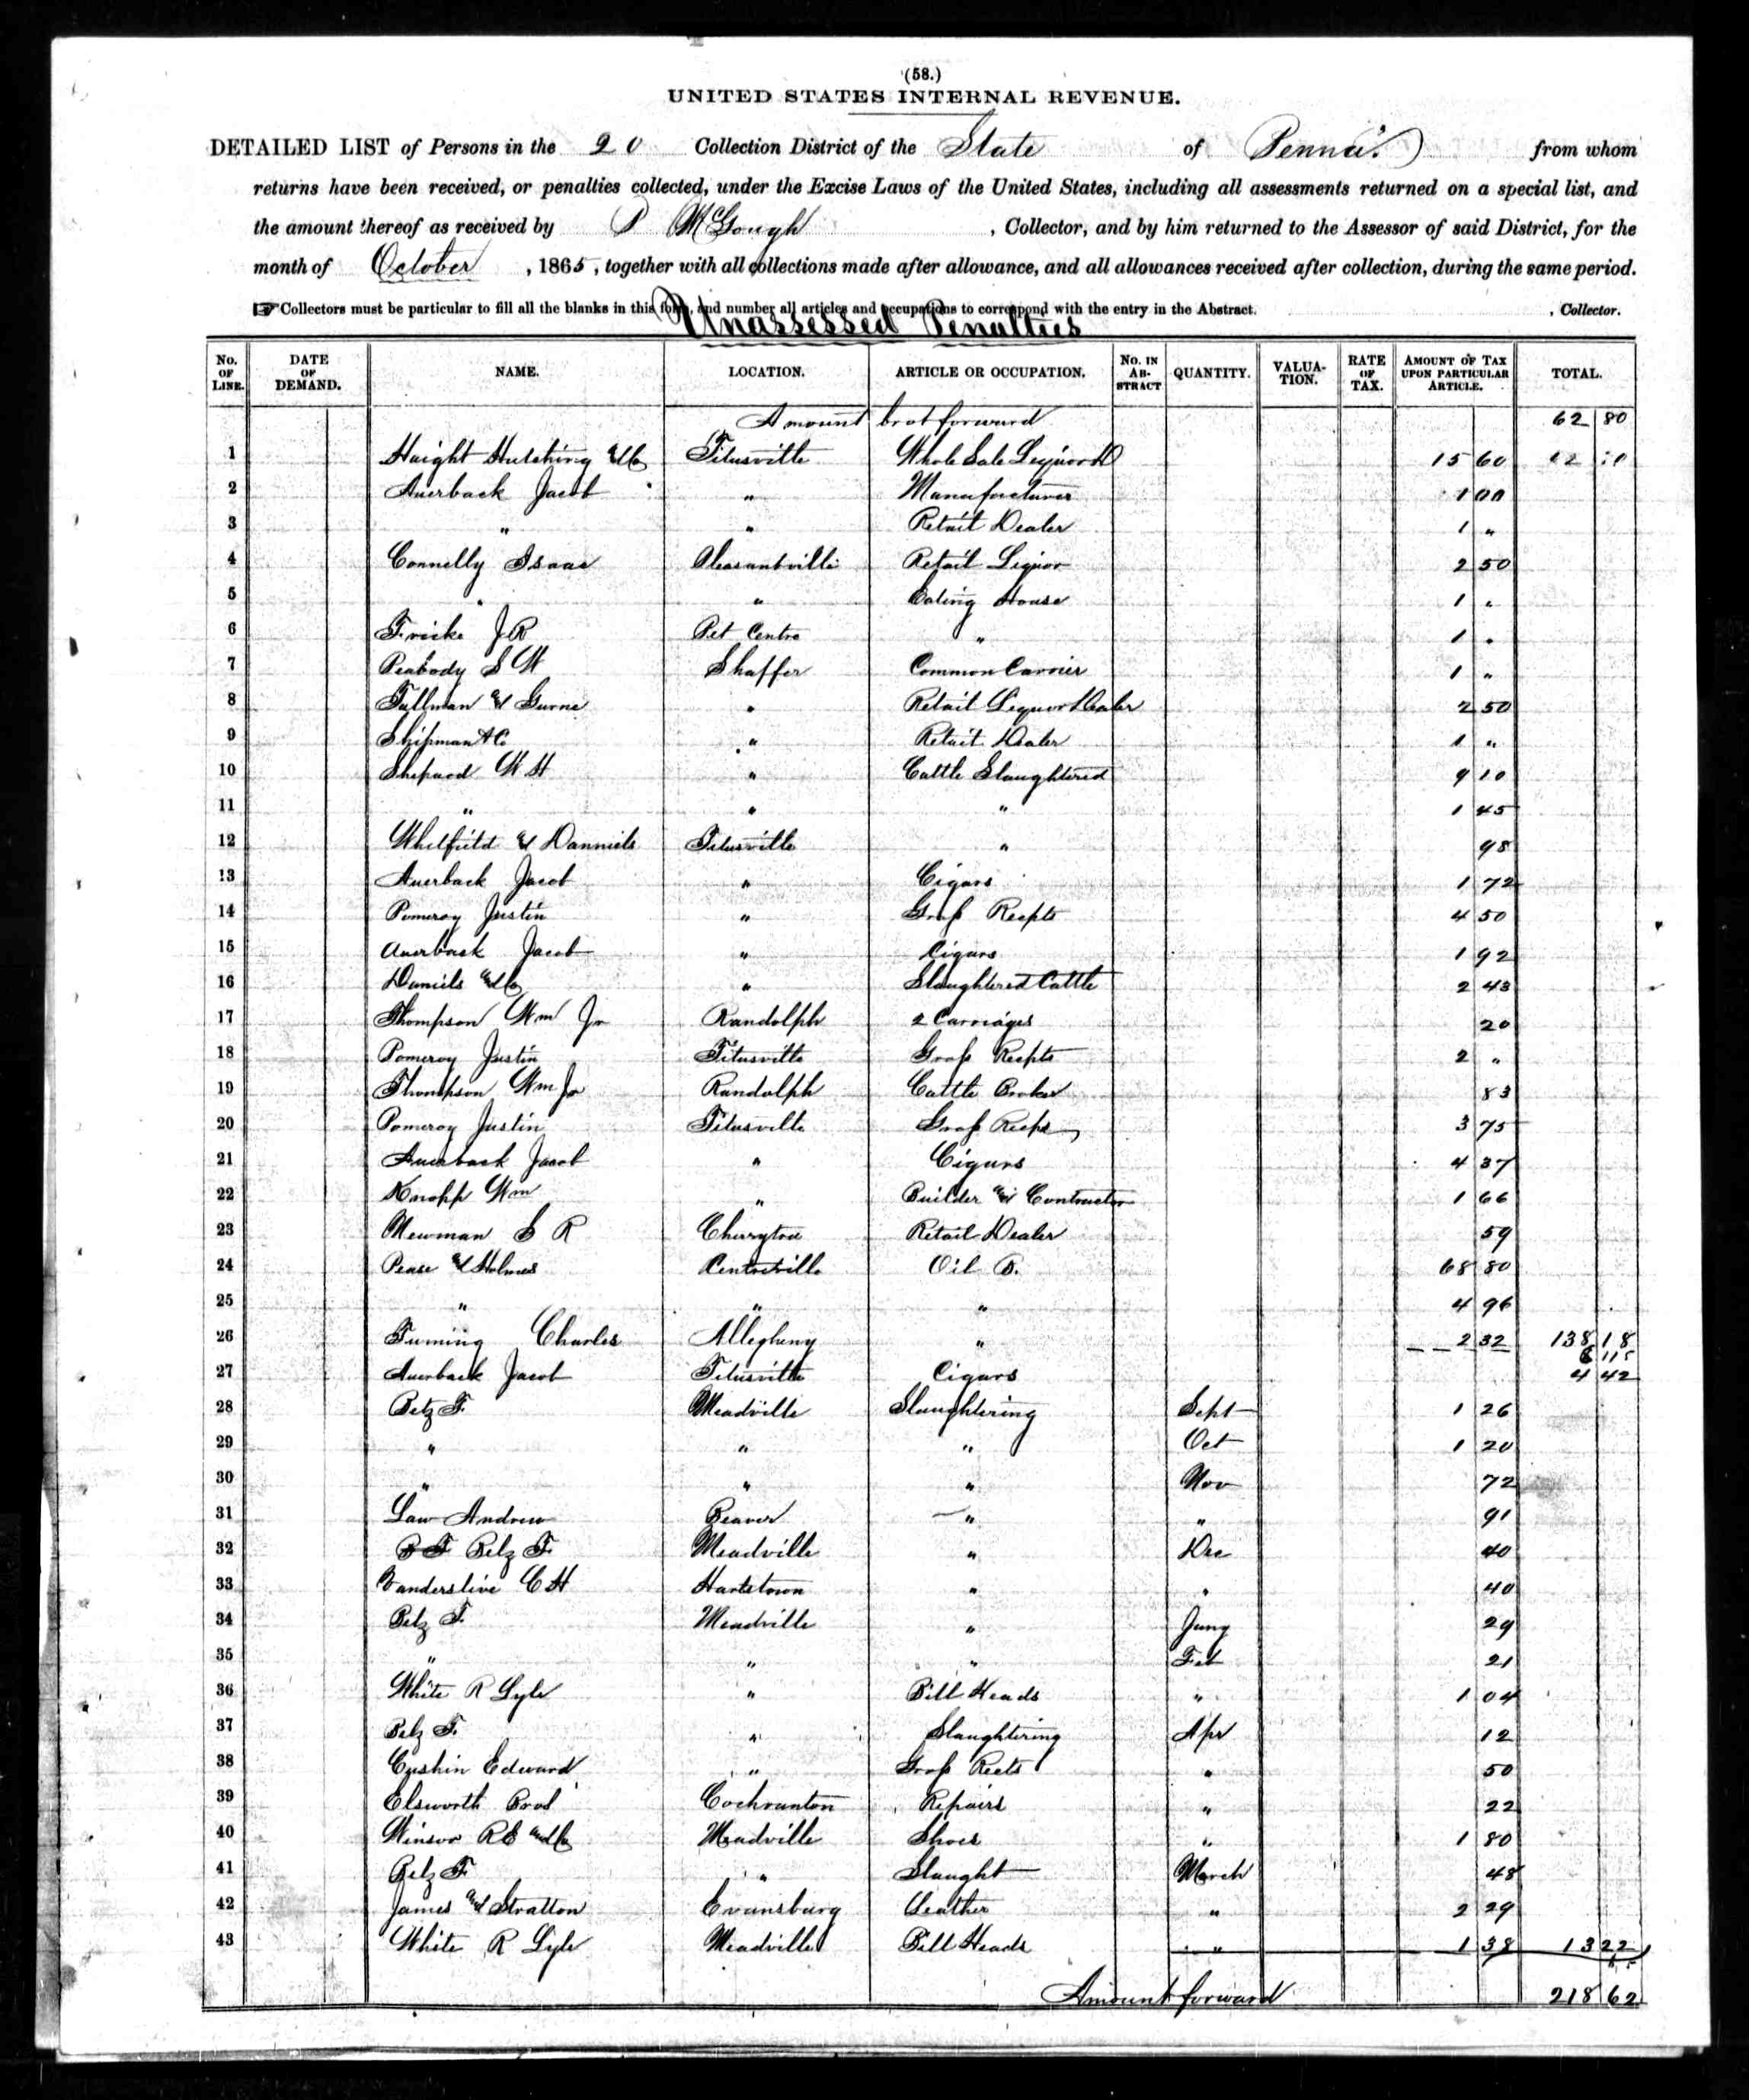 (58.)
UNITED STATES INTERNAL REVENUE.
DETAILED LIST of Persons in the 20 Collection District of the State of Penna. from whom
returns have been received, or penalties collected, under the Excise Laws of the United States, including all assessments returned on a special list, and
the amount thereof as received by P McGough , Collector, and by him returned to the Assessor of said District, for the
month of October , 1865, together with all collections made after allowance, and all allowances received after collection, during the same period.
☞ Collectors must be particular to fill all the blanks in this form, and number all articles and occupations to correspond with the entry in the Abstract. , Collector.
Unassessed Penalties
No. OF LINE. DATE OF DEMAND. NAME. LOCATION. ARTICLE OR OCCUPATION. No. IN ABSTRACT QUANTITY. VALUATION. RATE OF TAX. AMOUNT OF TAX UPON PARTICULAR ARTICLE. TOTAL.
Amount brot forward 62 80
1 Haight Hutching & Co Titusville Whole Sale Liquor D 15 60
2 Auerback Jacob " Manufacturer 1 00
3 " " Retail Dealer 1 "
4 Connelly Isaac Pleasantville Retail Liquor 2 50
5 " " Eating House 1 "
6 Fricke J R Pet Centre " 1 "
7 Peabody S W Shaffer Common Carrier 1 "
8 Tullman & Gurne " Retail Liquor Dealer 2 50
9 Shipman & Co " Retail Dealer 1 "
10 Shepard W H " Cattle Slaughtered 9 10
11 " " " 1 45
12 Whitfield & Danniels Titusville " 98
13 Auerback Jacob " Cigars 1 72
14 Pomeroy Justin " Gross Recpts 4 50
15 Auerback Jacob " Cigars 1 92
16 Daniels & Co " Slaughtered Cattle 2 43
17 Thompson Wm Jr Randolph 2 Carriages 20
18 Pomeroy Justin Titusville Gross Recpts 2 "
19 Thompson Wm Jr Randolph Cattle Broker 83
20 Pomeroy Justin Titusville Gross Recpts 3 75
21 Auerback Jacob " Cigars 4 37
22 Knopp Wm " Builder & Contractor 1 66
23 Newman S R Cherrytree Retail Dealer 59
24 Pease & Holmes Centreville Oil B. 68 80
25 " " " 4 96
26 Charles Allegheny " 2 32 138 18
27 Auerback Jacob Titusville Cigars 4 42
28 Betz F. Meadville Slaughtering Sept 1 26
29 " " " Oct 1 20
30 " " " Nov 72
31 Law Andrew Beaver " " 91
32 B F Betz F. Meadville " Dec 40
33 Vanderslive C H Hartstown " " 40
34 Betz F. Meadville " Jany 29
35 " " " Feb 21
36 White R Lyle " Bill Heads " 1 04
37 Betz F. " Slaughtering Apr 12
38 Cushin Edward " Gross Rects " 50
39 Elsworth Brod Cochranton Repairs " 22
40 Winsor R E and Co Meadville Shoes " 1 80
41 Betz F " Slaught March 48
42 James & Stratton Evansburg Leather " 2 29
43 White R Lyle Meadville Bill Heads " 1 38 13 22
Amount forward 218 62